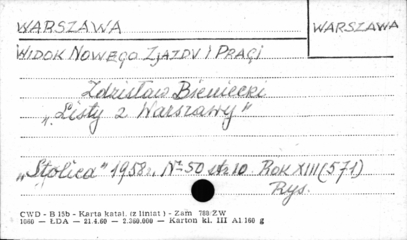 WARSZAWA
WARSZAWA
WIDOK NOWEGO ZJAZDU I PRAGI
Zdzisław Bieniecki
„Listy z Warszawy"
„Stolica" 1958 r. Nr 50 str. 10 Rok XIII (571)
Rys.
CWD - B 15b - Karta katal. (z liniat) - Zam 788 ZW
1660 — ŁDA — 21.4.60 — 2.360.000 — Karton kl. III A1 160 g